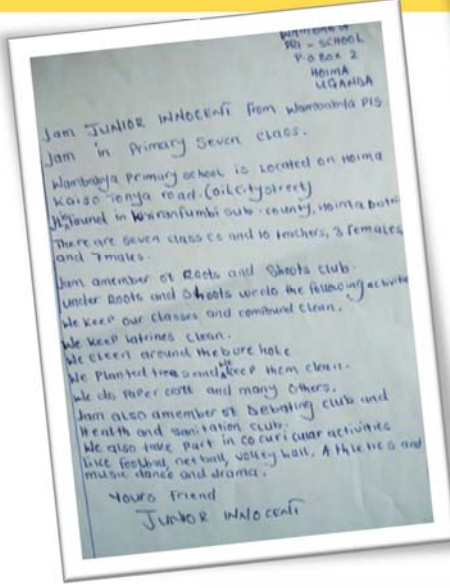 PRI - SCHOOL
P.O BOX 2
HOIMA
UGANDA
Iam JUNIOR INNOCENT from Wambabya P/S
Iam in Primary Seven class.
Wambabya Primary school is located on Hoima
Kaiso Tonya road (oil city street)
found in Kiziranfumbi sub-county, Hoima Distri
There are seven classes and 10 teachers, 3 females
and 7 males.
Iam amember of Roots and Shoots club.
under Roots and Shoots we do the following activitie
We keep our classes and compound clean.
We keep latrines clean.
We cleen around the bore hole
We Planted trees and we keep them clean.
We do Paper craft and many others.
Iam also amember of Debating club and
Health and sanitation club.
We also take part in cocuricular activities
like football, netball, volley ball. Athletics and
music dance and drama.
Yours Friend
JUNIOR INNOCENT